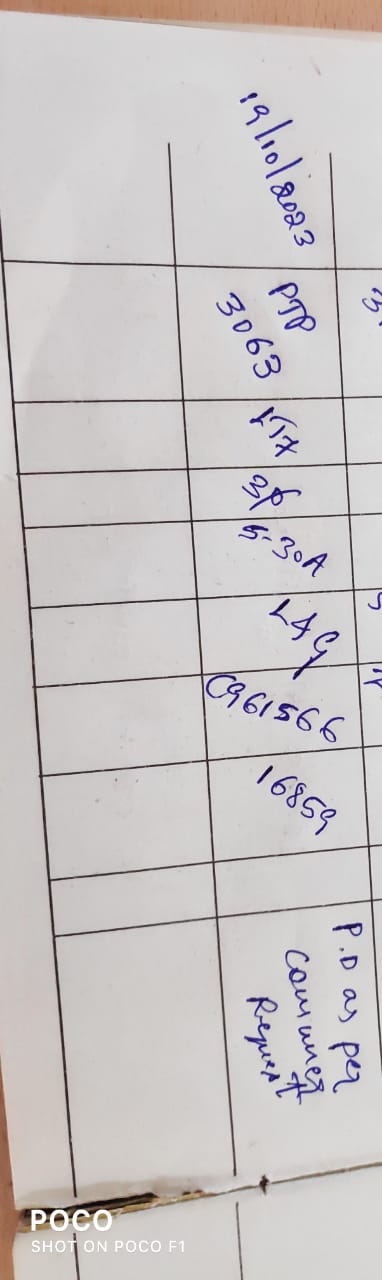 19/10/2023
PTP
3063
3φ
5-30A
L+G
C961566
16859
P.D as per
Consumer
Request
POCO
SHOT ON POCO F1